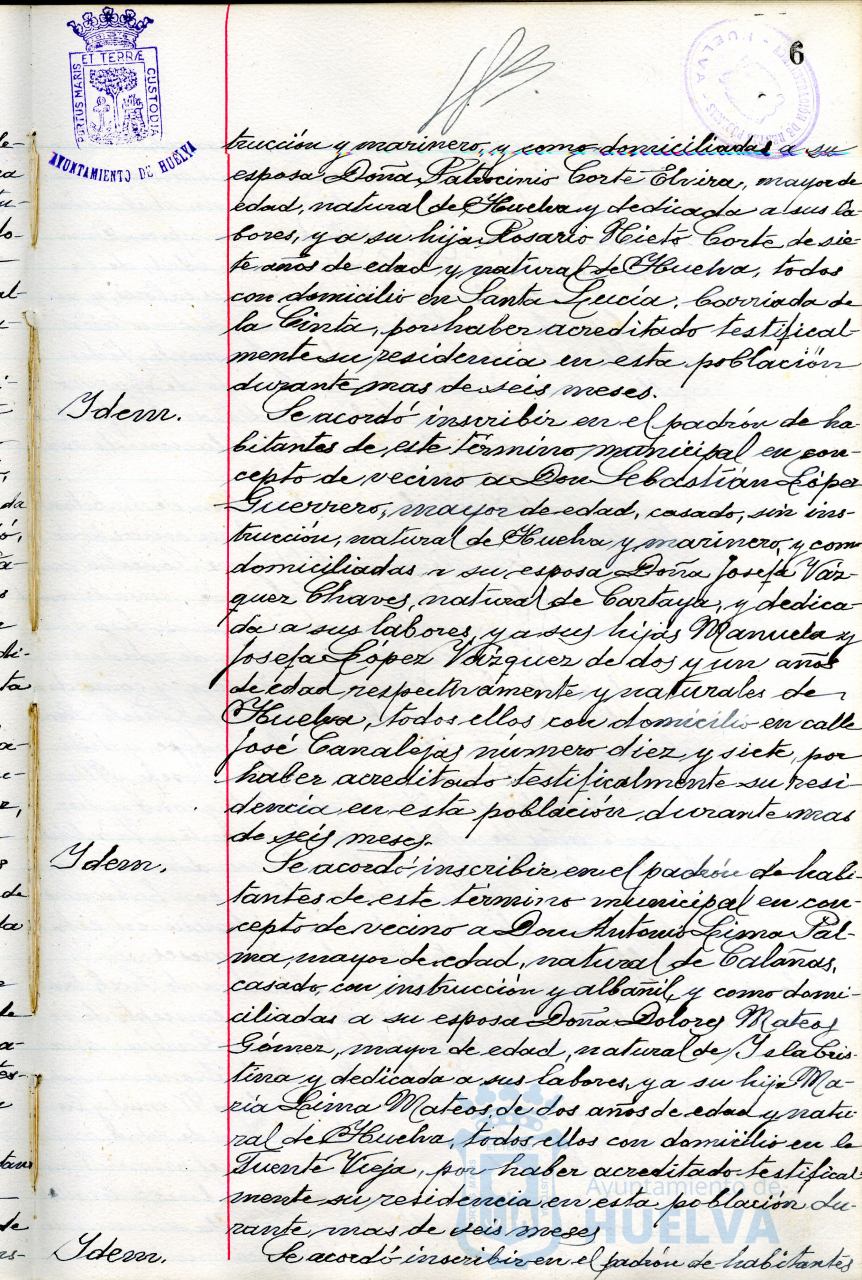 6
PORTUS MARIS ET TERRÆ CUSTODIA
AYUNTAMIENTO DE HUELVA
trucción y marinero, y como domiciliadas a su
esposa Doña Patrocinio Corté Elvira, mayor de
edad, natural de Huelva y dedicada a sus la-
bores, y a su hija Rosario Nieto Corté de sie-
te años de edad y natural de Huelva, todos
con domicilio en Santa Lucía, barriada de
la Cinta, por haber acreditado testifical-
mente su residencia en esta población
durante mas de seis meses.
Idem.
Se acordó inscribir en el padrón de ha-
bitantes de este término municipal en con-
cepto de vecino a Don Sebastián López
Guerrero, mayor de edad, casado, sin ins-
trucción, natural de Huelva y marinero, y como
domiciliadas a su esposa Doña Josefa Váz-
quez Chaves, natural de Cartaya, y dedica-
da a sus labores, y a sus hijas Manuela y
Josefa López Vázquez de dos y un años
de edad respectivamente y naturales de
Huelva, todos ellos con domicilio en calle
José Canalejas número diez y siete, por
haber acreditado testificalmente su resi-
dencia en esta población, durante mas
de seis meses.
Idem.
Se acordó inscribir en el padrón de habi-
tantes de este término municipal en con-
cepto de vecino a Don Antonio Lima Pal-
ma, mayor de edad, natural de Calañas,
casado, con instrucción y albañil, y como domi-
ciliadas a su esposa Doña Dolores Mateos
Gómez, mayor de edad, natural de Isla Cris-
tina y dedicada a sus labores, y a su hija Ma-
ría Lima Mateos, de dos años de edad y natu-
ral de Huelva, todos ellos con domicilio en la
Fuente Vieja, por haber acreditado testifical-
mente su residencia en esta población du-
rante mas de seis meses
Idem.
Se acordó inscribir en el padrón de habitantes
Ayuntamiento de
HUELVA